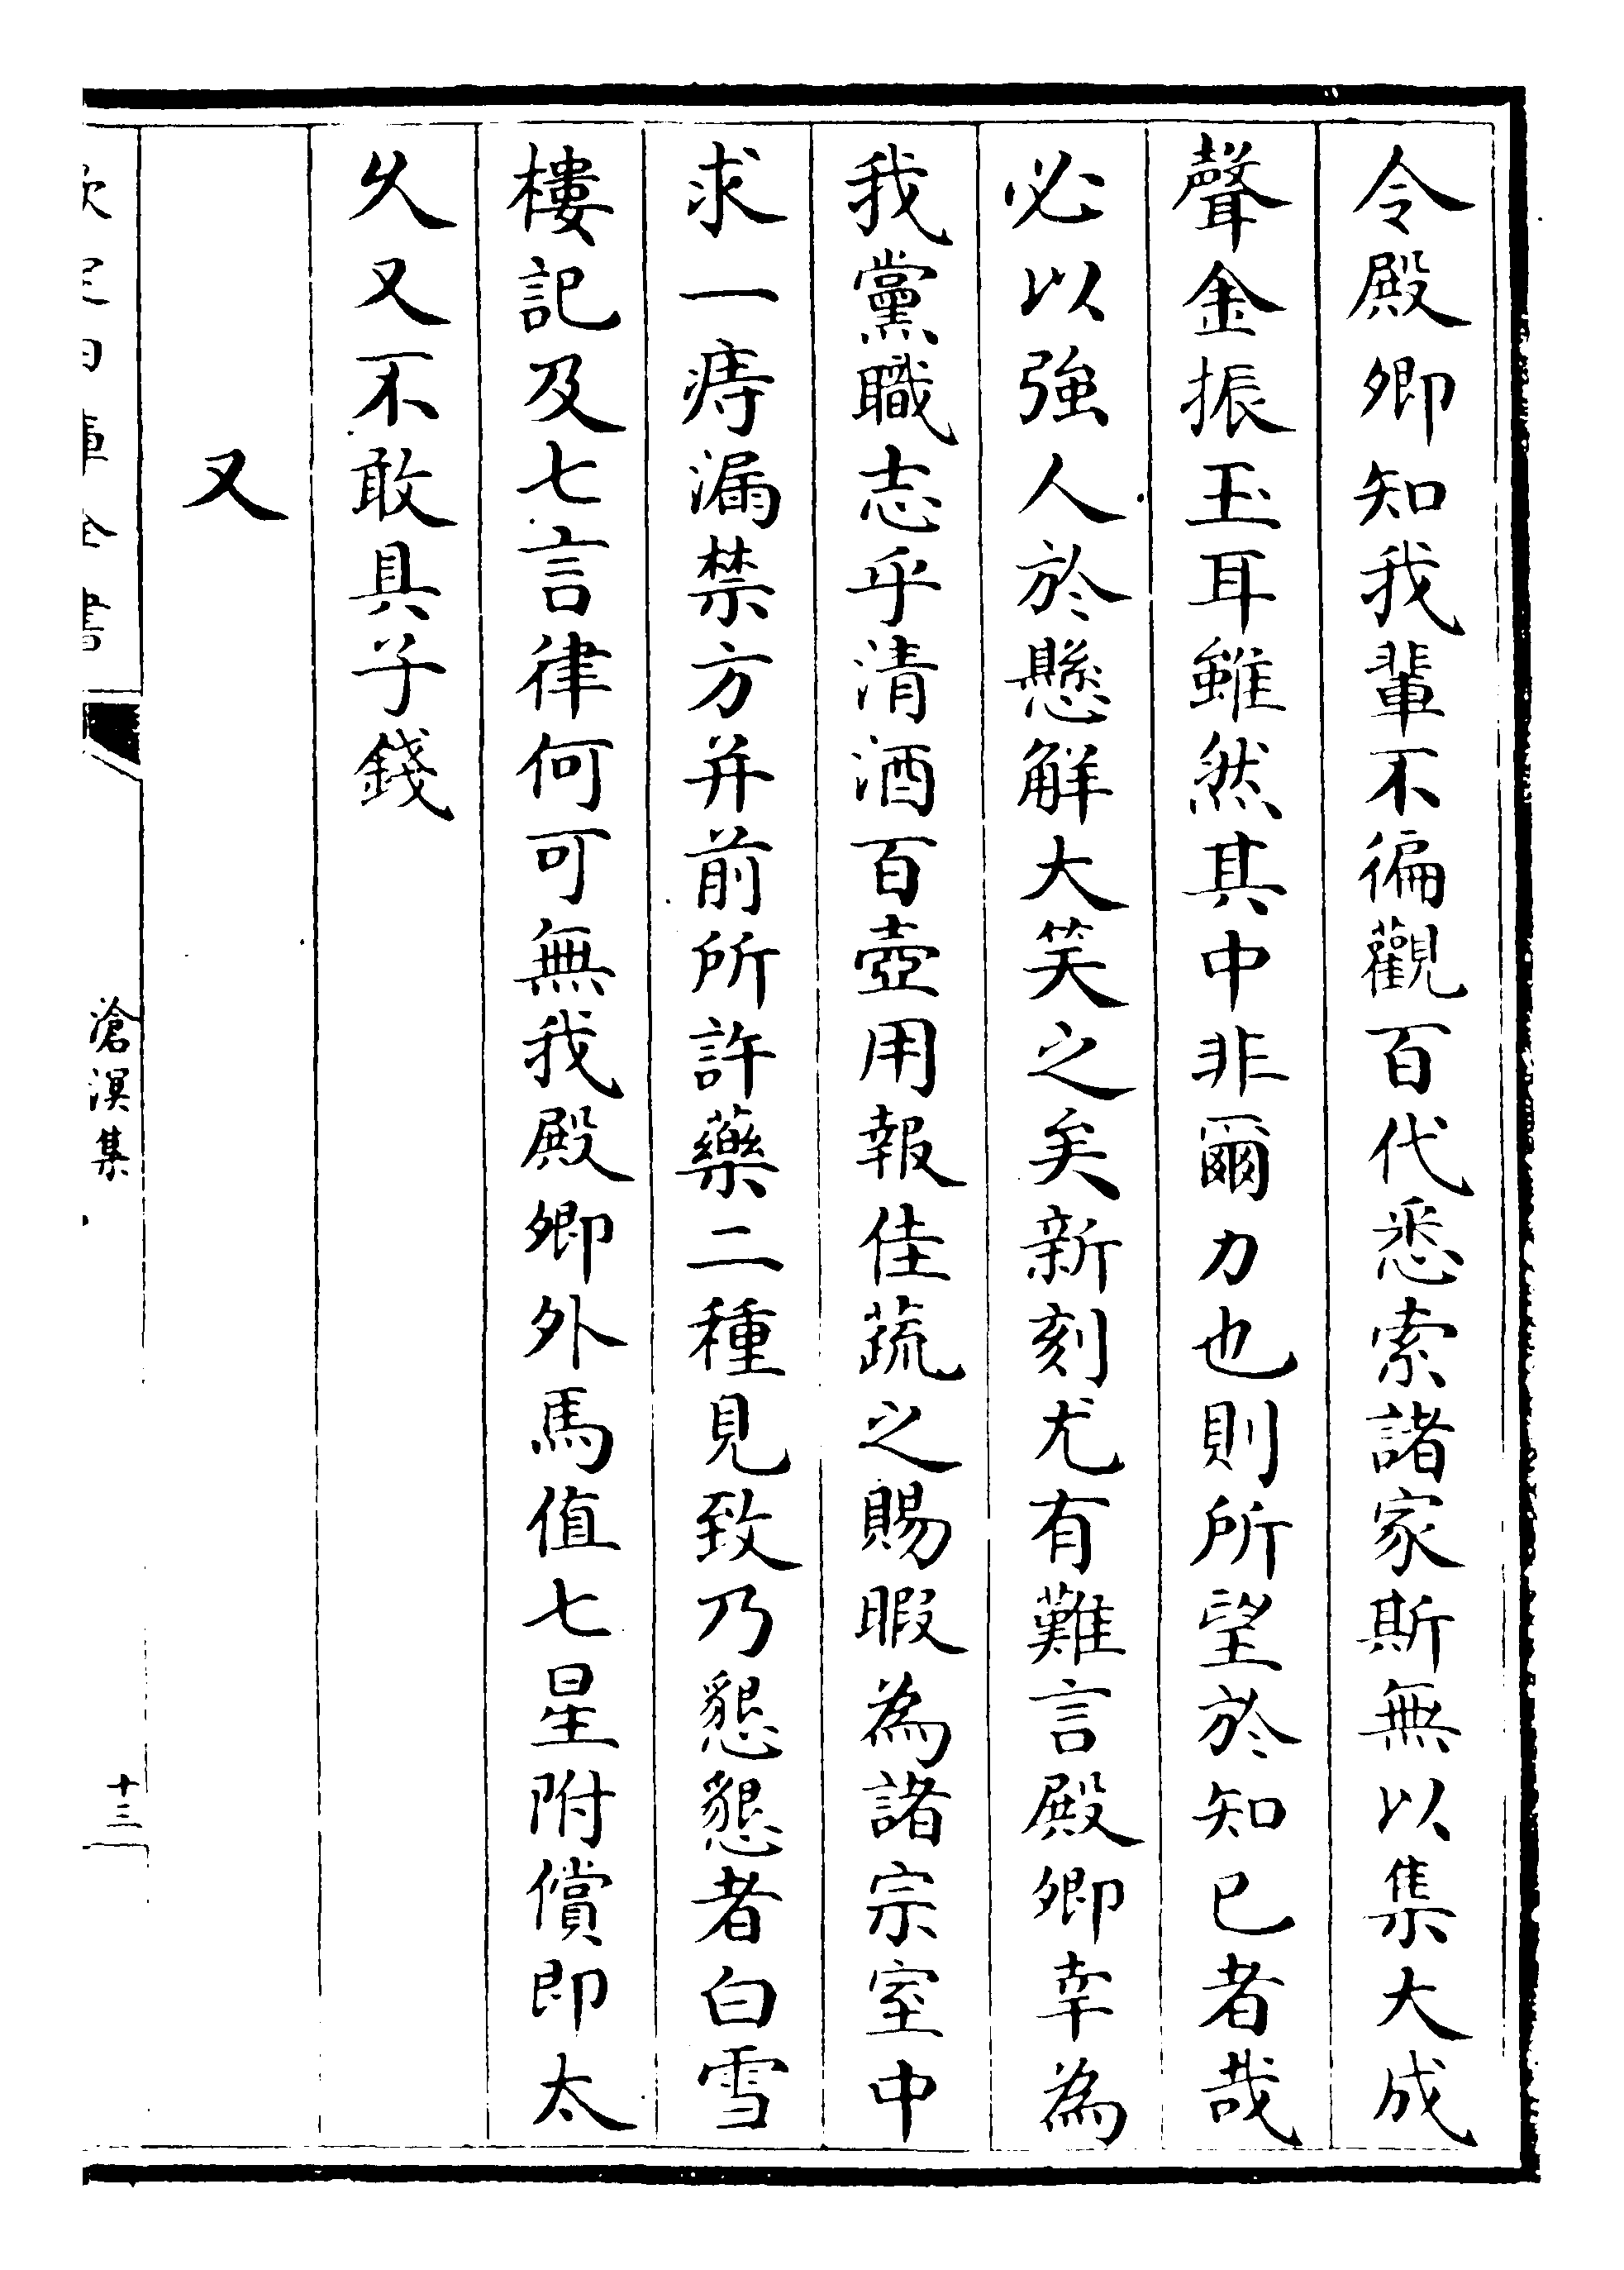 令殿卿知我輩不徧觀百代悉索諸家斯無以集大成
聲金振玉耳雖然其中非爾力也則所望於知已者哉
必以強人於懸解大笑之矣新刻尤有難言殿卿幸為
我黨職志乎清酒百壺用報佳蔬之賜暇為諸宗室中
求一痔漏禁方并前所許藥二種見致乃懇懇者白雪
樓記及七言律何可無我殿卿外馬值七星附償即太
久又不敢具子錢
又
欽定四庫全書
滄溟集
十三